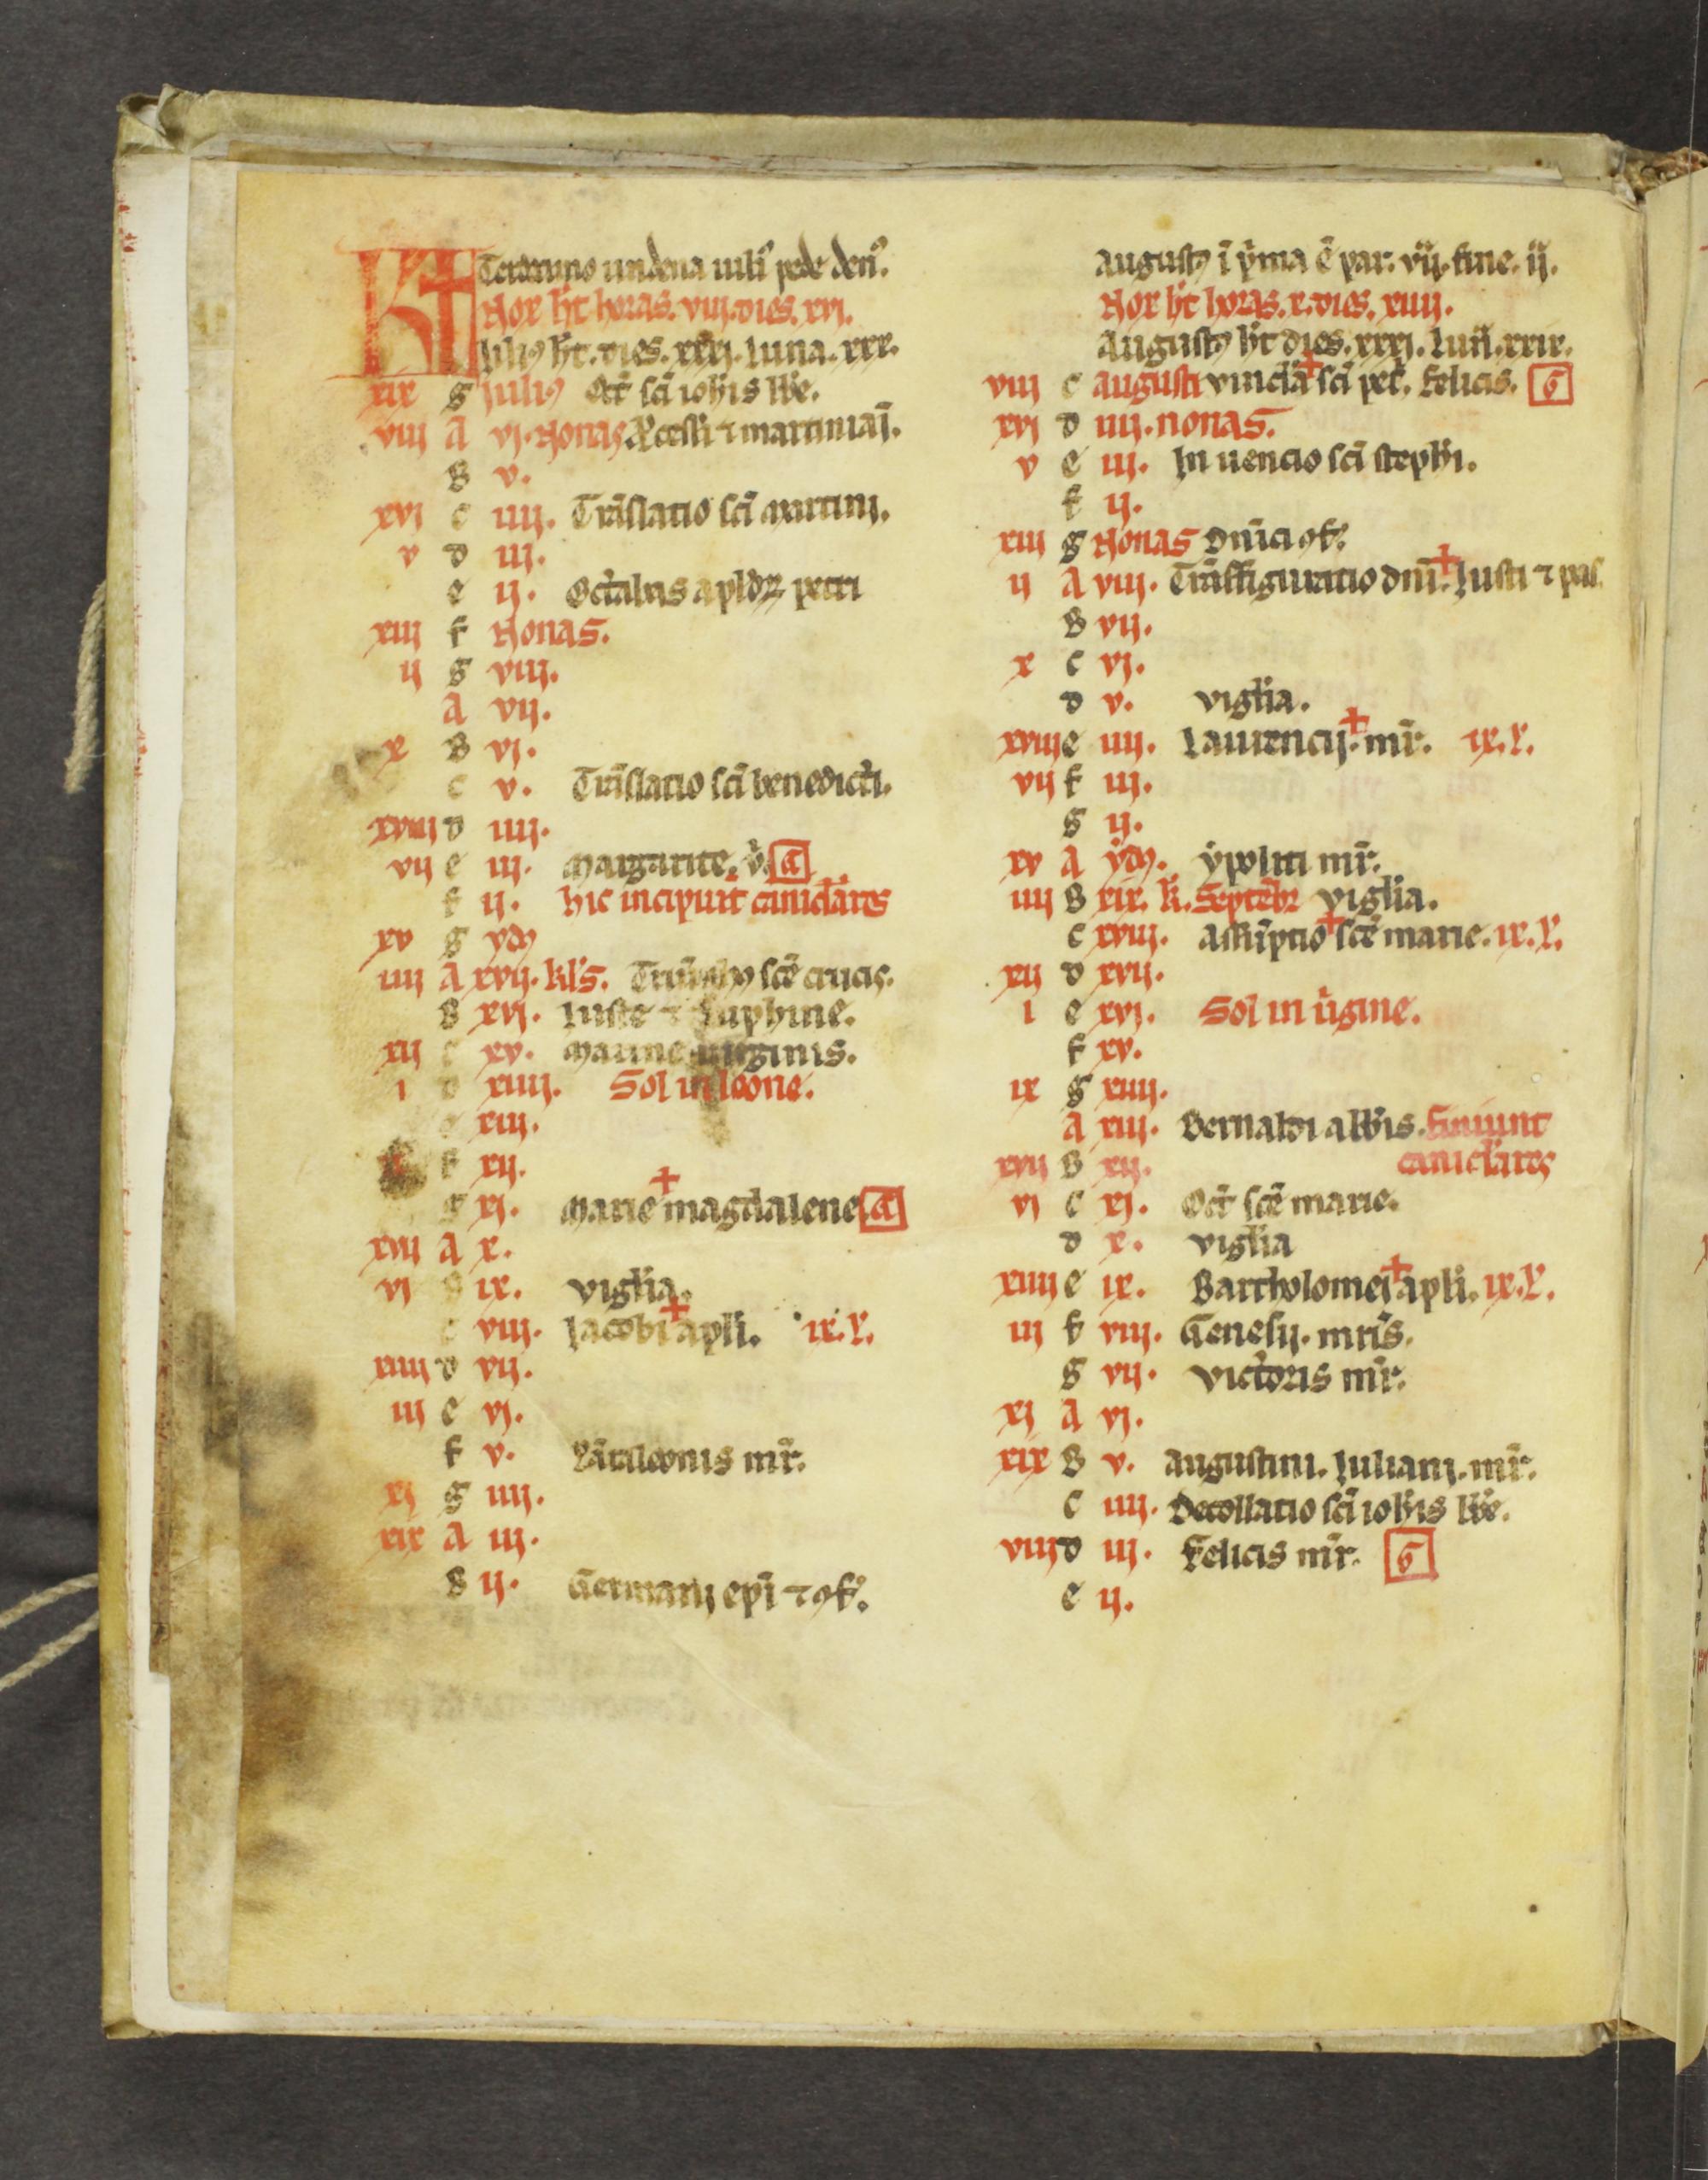 KL Terdecimo undena iulii pede den9.
Nox ht horas. viij. dies. xvj.
Juli9 ht. dies. xxxj. luna. xxx.
xix g Juli9 Oct sci ioħis bbe.
viij A vj. Nonas Processi ⁊ martiniai.
B v.
xvj c iiij. Trãslatio sci martinj.
v d iij.
e ij. Octabas aplorꝝ petri
xiij f Nonas.
ij g viij.
A vij.
x B vj.
c v. Trãslatio sci benedicti.
xviij d iiij.
vij e iij. Margarite. v. a
f ij. hic incipiut caniclares
xv g yd9
iiij A xvij. kls. Triuph9 sce crucis.
B xvj. Juste ⁊ Ruphine.
xij c xv. Marine uirginis.
i d xiiij. Sol in leone.
e xiij.
f xij.
g xj. Marie magdalene a
xvij A x.
vi B ix. viglia.
c viij. Jacobi apli. ix. l.
xiiij d vij.
iij e vj.
f v. Pãtaleonis mr.
xj g iiij.
xix A iij.
B ij. Germanj epi ⁊ 9f.
August9 i pma e par. vij. fine. ij.
Nox ht horas. x. dies. xiiij.
August9 ht dies. xxxj. Lun. xxix.
viij c augusti vincla sci pet. felicis. G
xvj d iiij. nonas.
v e iij. Inuencio sci stephi.
f ij.
xiij g Nonas Dnici 9f.
ij A viij. Trãsfiguratio dni. Justi ⁊ pas
B vij.
x c vj.
d v. viglia.
xviij e iiij. Laurencij. mr. ix. l.
vij f iij.
g ij.
xv A yd9. ypoliti mr.
iiij B xix. k. Septebr viglia.
c xviij. Assũptio sce marie. ix. l.
xij d xvij.
i e xvj. Sol in ugine.
f xv.
ix g xiiij.
A xiij. Bernaldi abbis. finiunt
xvij B xij. caniclares
vj c xj. Oct sce marie.
d x. viglia
xiiij e ix. Bartholomei apli. ix. l.
iij f viij. Genesij. mris.
g vij. victoris mr.
xj A vj.
xix B v. augustini. Julianj. mr.
c iiij. Decollatio sci ioħis bbe.
viij d iij. felicis mr. G
e ij.